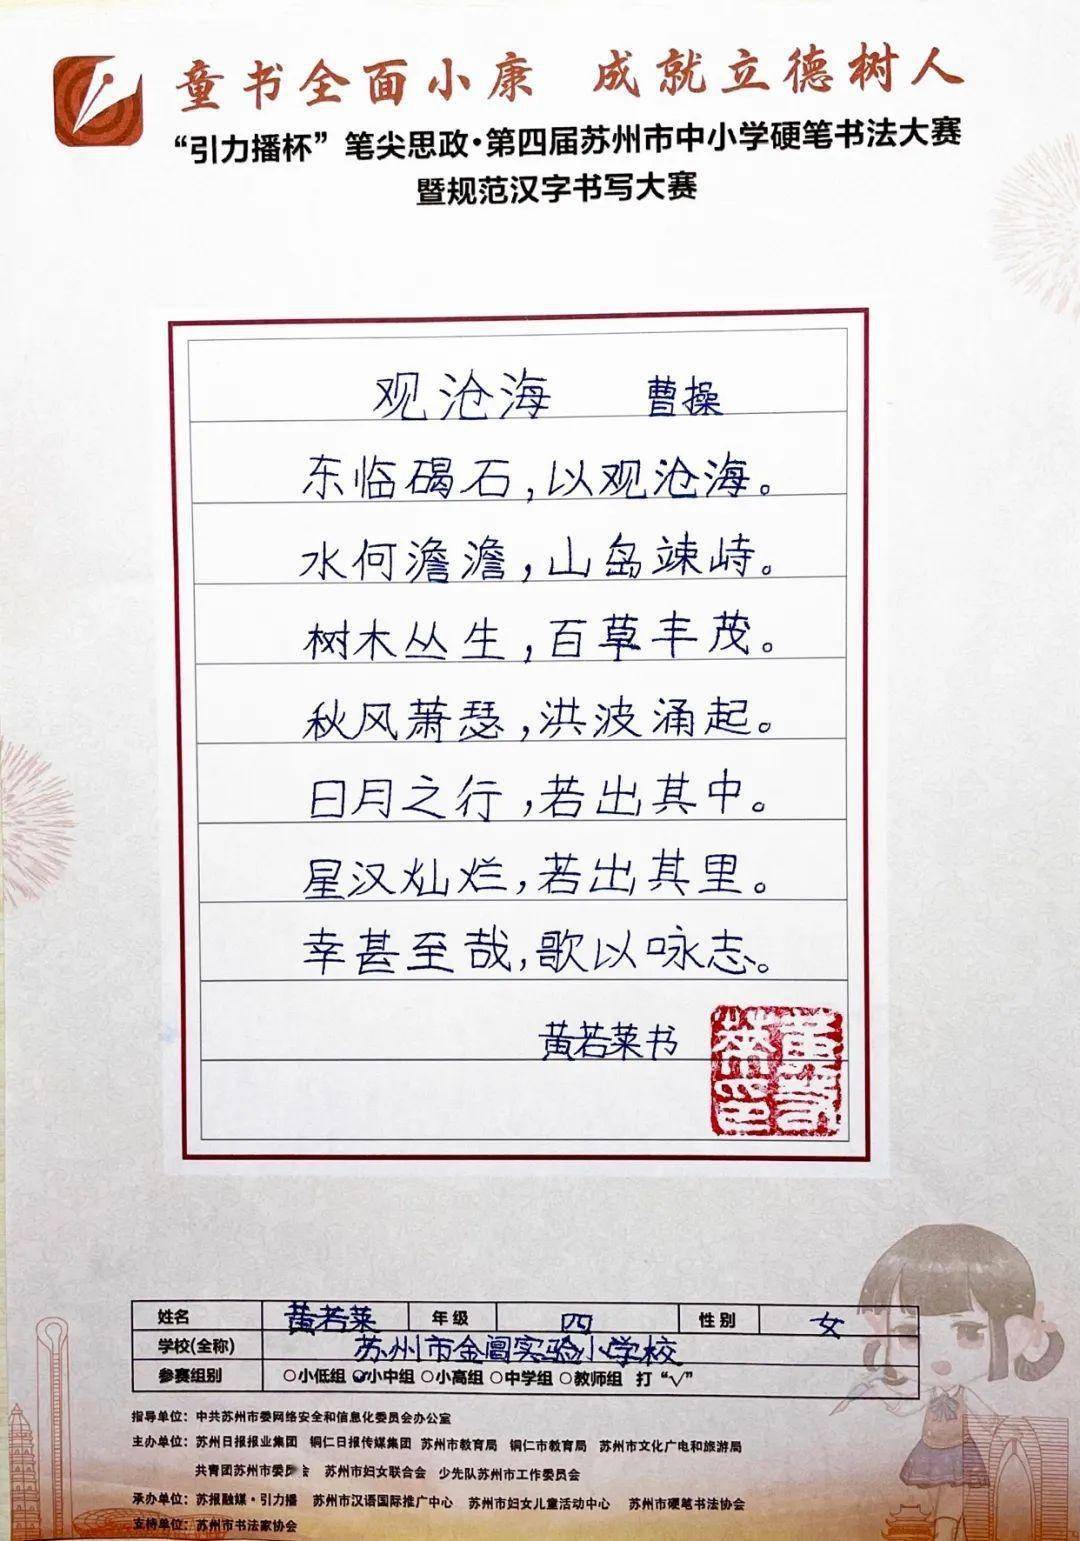 童书全面小康 成就立德树人
“引力播杯”笔尖思政·第四届苏州市中小学硬笔书法大赛
暨规范汉字书写大赛
观沧海 曹操
东临碣石,以观沧海。
水何澹澹,山岛竦峙。
树木丛生,百草丰茂。
秋风萧瑟,洪波涌起。
日月之行,若出其中。
星汉灿烂,若出其里。
幸甚至哉,歌以咏志。
黄若菜书
黄若菜印
姓名 黄若菜 年级 四 性别 女
学校(全称) 苏州市金阊实验小学校
参赛组别 ○小低组 ✓小中组 ○小高组 ○中学组 ○教师组 打“√”
指导单位：中共苏州市委网络安全和信息化委员会办公室
主办单位：苏州日报报业集团 铜仁日报传媒集团 苏州市教育局 铜仁市教育局 苏州市文化广电和旅游局
共青团苏州市委员会 苏州市妇女联合会 少先队苏州市工作委员会
承办单位：苏报融媒·引力播 苏州市汉语国际推广中心 苏州市妇女儿童活动中心 苏州市硬笔书法协会
支持单位：苏州市书法家协会